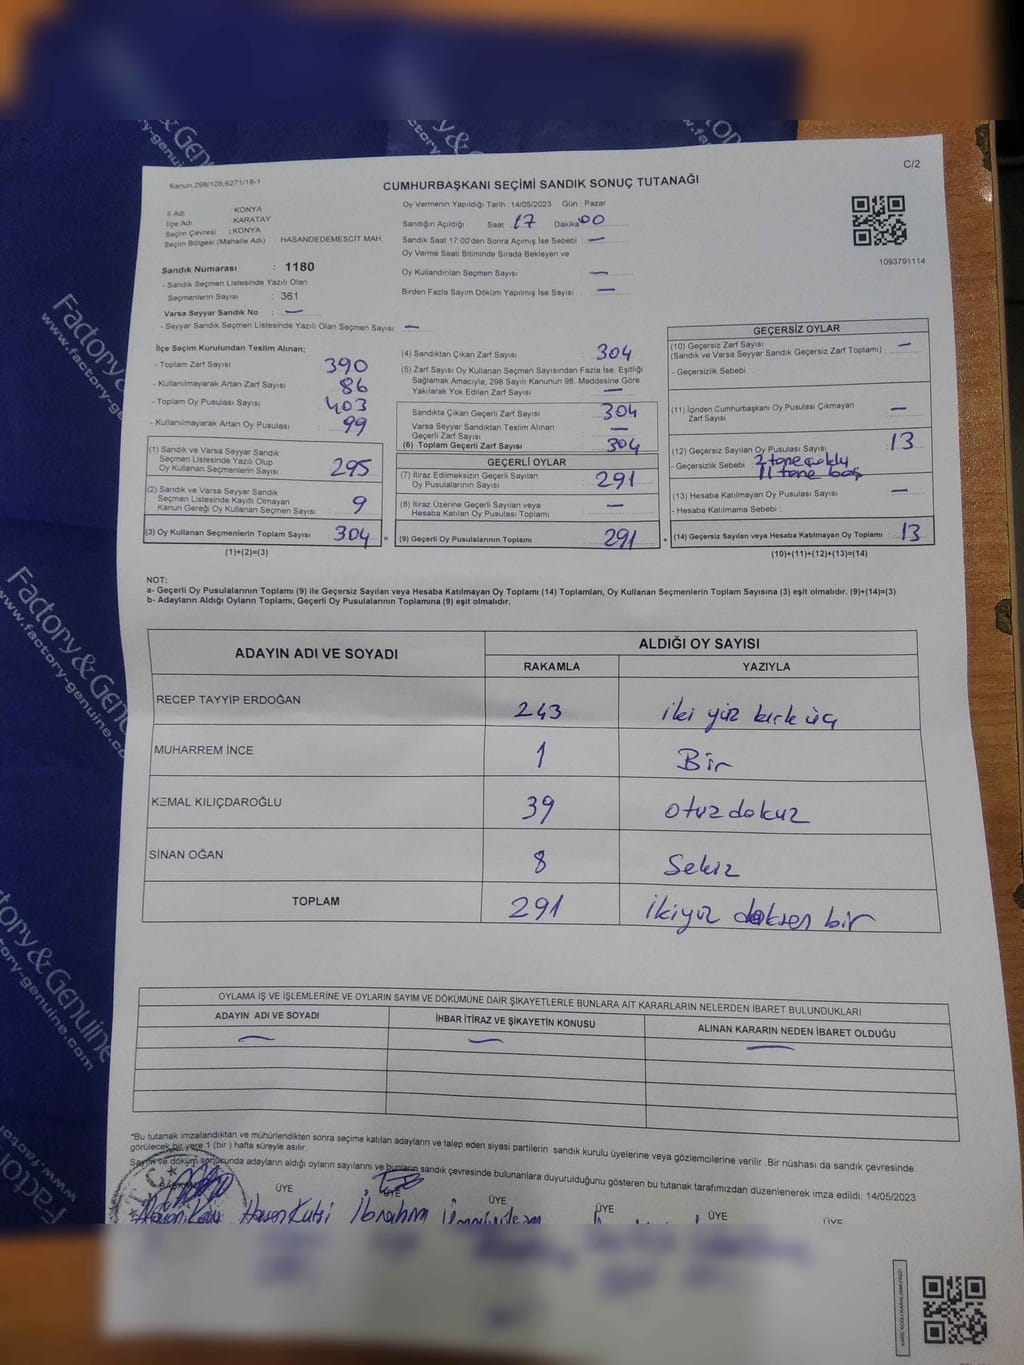 C/2
Kanun:298/105;6271/18-1
CUMHURBAŞKANI SEÇİMİ SANDIK SONUÇ TUTANAĞI
İl Adı : KONYA
İlçe Adı : KARATAY
Seçim Çevresi : KONYA
Seçim Bölgesi (Mahalle Adı) : HASANDEDEMESCİT MAH.
Sandık Numarası : 1180
- Sandık Seçmen Listesinde Yazılı Olan
Seçmenlerin Sayısı : 361
Varsa Seyyar Sandık No : —
- Seyyar Sandık Seçmen Listesinde Yazılı Olan Seçmen Sayısı: —
Oy Vermenin Yapıldığı Tarih : 14/05/2023 Gün : Pazar
Sandığın Açıldığı Saat 17 Dakika 00
Sandık Saat 17:00'den Sonra Açılmış İse Sebebi : —
Oy Verme Saati Bitiminde Sırada Bekleyen ve
Oy Kullandırılan Seçmen Sayısı : —
Birden Fazla Sayım Döküm Yapılmış İse Sayısı : —
1093791114
İlçe Seçim Kurulundan Teslim Alınan;
- Toplam Zarf Sayısı : 390
- Kullanılmayarak Artan Zarf Sayısı : 86
- Toplam Oy Pusulası Sayısı : 403
- Kullanılmayarak Artan Oy Pusulası : 99
(1) Sandık ve Varsa Seyyar Sandık
Seçmen Listesinde Yazılı Olup
Oy Kullanan Seçmenlerin Sayısı : 295
(2) Sandık ve Varsa Seyyar Sandık
Seçmen Listesinde Kayıtlı Olmayan
Kanun Gereği Oy Kullanan Seçmen Sayısı : 9
(3) Oy Kullanan Seçmenlerin Toplam Sayısı : 304 =
(1)+(2)=(3)
(4) Sandıktan Çıkan Zarf Sayısı : 304
(5) Zarf Sayısı Oy Kullanan Seçmen Sayısından Fazla İse, Eşitliği
Sağlamak Amacıyla, 298 Sayılı Kanunun 98. Maddesine Göre
Yakılarak Yok Edilen Zarf Sayısı : —
Sandıkta Çıkan Geçerli Zarf Sayısı : 304
Varsa Seyyar Sandıktan Teslim Alınan
Geçerli Zarf Sayısı : —
(6) Toplam Geçerli Zarf Sayısı : 304
GEÇERLİ OYLAR
(7) İtiraz Edilmeksizin Geçerli Sayılan
Oy Pusulalarının Sayısı : 291
(8) İtiraz Üzerine Geçerli Sayılan veya
Hesaba Katılan Oy Pusulası Toplamı : —
(9) Geçerli Oy Pusulalarının Toplamı : 291 +
GEÇERSİZ OYLAR
(10) Geçersiz Zarf Sayısı
(Sandık ve Varsa Seyyar Sandık Geçersiz Zarf Toplamı) : —
- Geçersizlik Sebebi :
(11) İçinden Cumhurbaşkanı Oy Pusulası Çıkmayan
Zarf Sayısı : —
(12) Geçersiz Sayılan Oy Pusulası Sayısı : 13
- Geçersizlik Sebebi : 2 tane
11 tane boş
(13) Hesaba Katılmayan Oy Pusulası Sayısı : —
- Hesaba Katılmama Sebebi :
(14) Geçersiz Sayılan veya Hesaba Katılmayan Oy Toplamı : 13
(10)+(11)+(12)+(13)=(14)
NOT:
a- Geçerli Oy Pusulalarının Toplamı (9) ile Geçersiz Sayılan veya Hesaba Katılmayan Oy Toplamı (14) Toplamları, Oy Kullanan Seçmenlerin Toplam Sayısına (3) eşit olmalıdır. (9)+(14)=(3)
b- Adayların Aldığı Oyların Toplamı, Geçerli Oy Pusulalarının Toplamına (9) eşit olmalıdır.
ADAYIN ADI VE SOYADI
ALDIĞI OY SAYISI
RAKAMLA YAZIYLA
RECEP TAYYİP ERDOĞAN 243 iki yüz kırk üç
MUHARREM İNCE 1 Bir
KEMAL KILIÇDAROĞLU 39 otuz dokuz
SİNAN OĞAN 8 Sekiz
TOPLAM 291 ikiyüz doksan bir
OYLAMA İŞ VE İŞLEMLERİNE VE OYLARIN SAYIM VE DÖKÜMÜNE DAİR ŞİKAYETLERLE BUNLARA AİT KARARLARIN NELERDEN İBARET BULUNDUKLARI
ADAYIN ADI VE SOYADI İHBAR İTİRAZ VE ŞİKAYETİN KONUSU ALINAN KARARIN NEDEN İBARET OLDUĞU
— — —
*Bu tutanak imzalandıktan ve mühürlendikten sonra seçime katılan adayların ve talep eden siyasi partilerin sandık kurulu üyelerine veya gözlemcilerine verilir .Bir nüshası da sandık çevresinde
görülecek bir yere 1 (bir ) hafta süreyle asılır.
Sayım ve döküm sonucunda adayların aldığı oyların sayılarını ve bunların sandık çevresinde bulunanlara duyurulduğunu gösteren bu tutanak tarafımızdan düzenlenerek imza edildi. 14/05/2023
BAŞKAN ÜYE ÜYE ÜYE ÜYE ÜYE ÜYE
Hasan İbrahim
T.C.
Factory & Genuine
www.factory-genuine.com
Factory & Genuine
www.factory-genuine.com